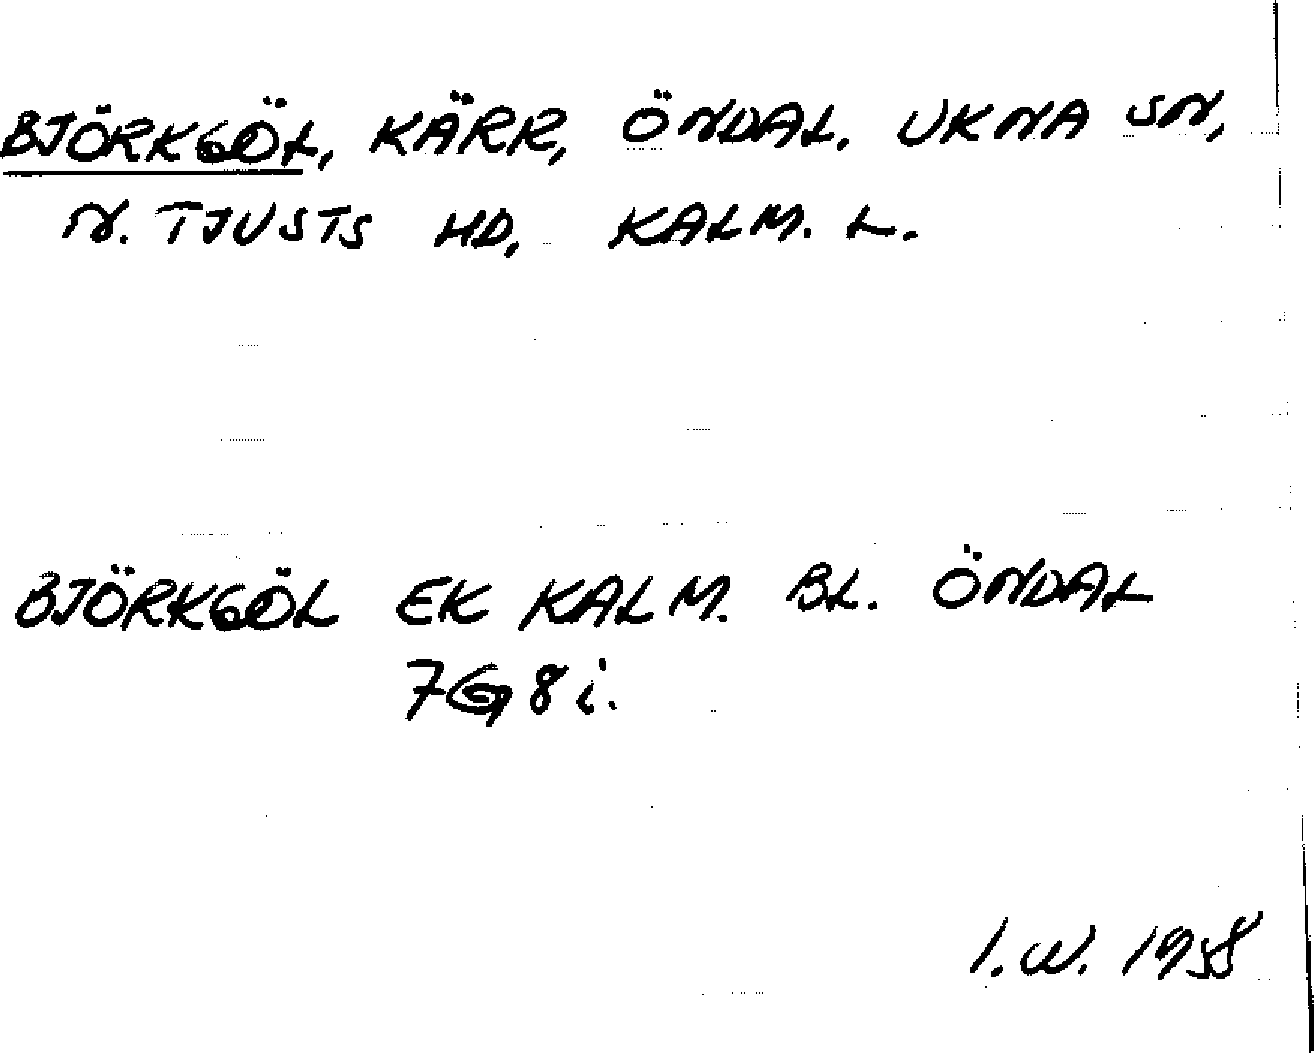 BJÖRKGÖL, KÄRR, ÖNDAL. UKNA SN,
N. TJUSTS HD, KALM. L.
BJÖRKGÖL EK KALM. BL. ÖNDAL
7G 8i.
I.W. 1958